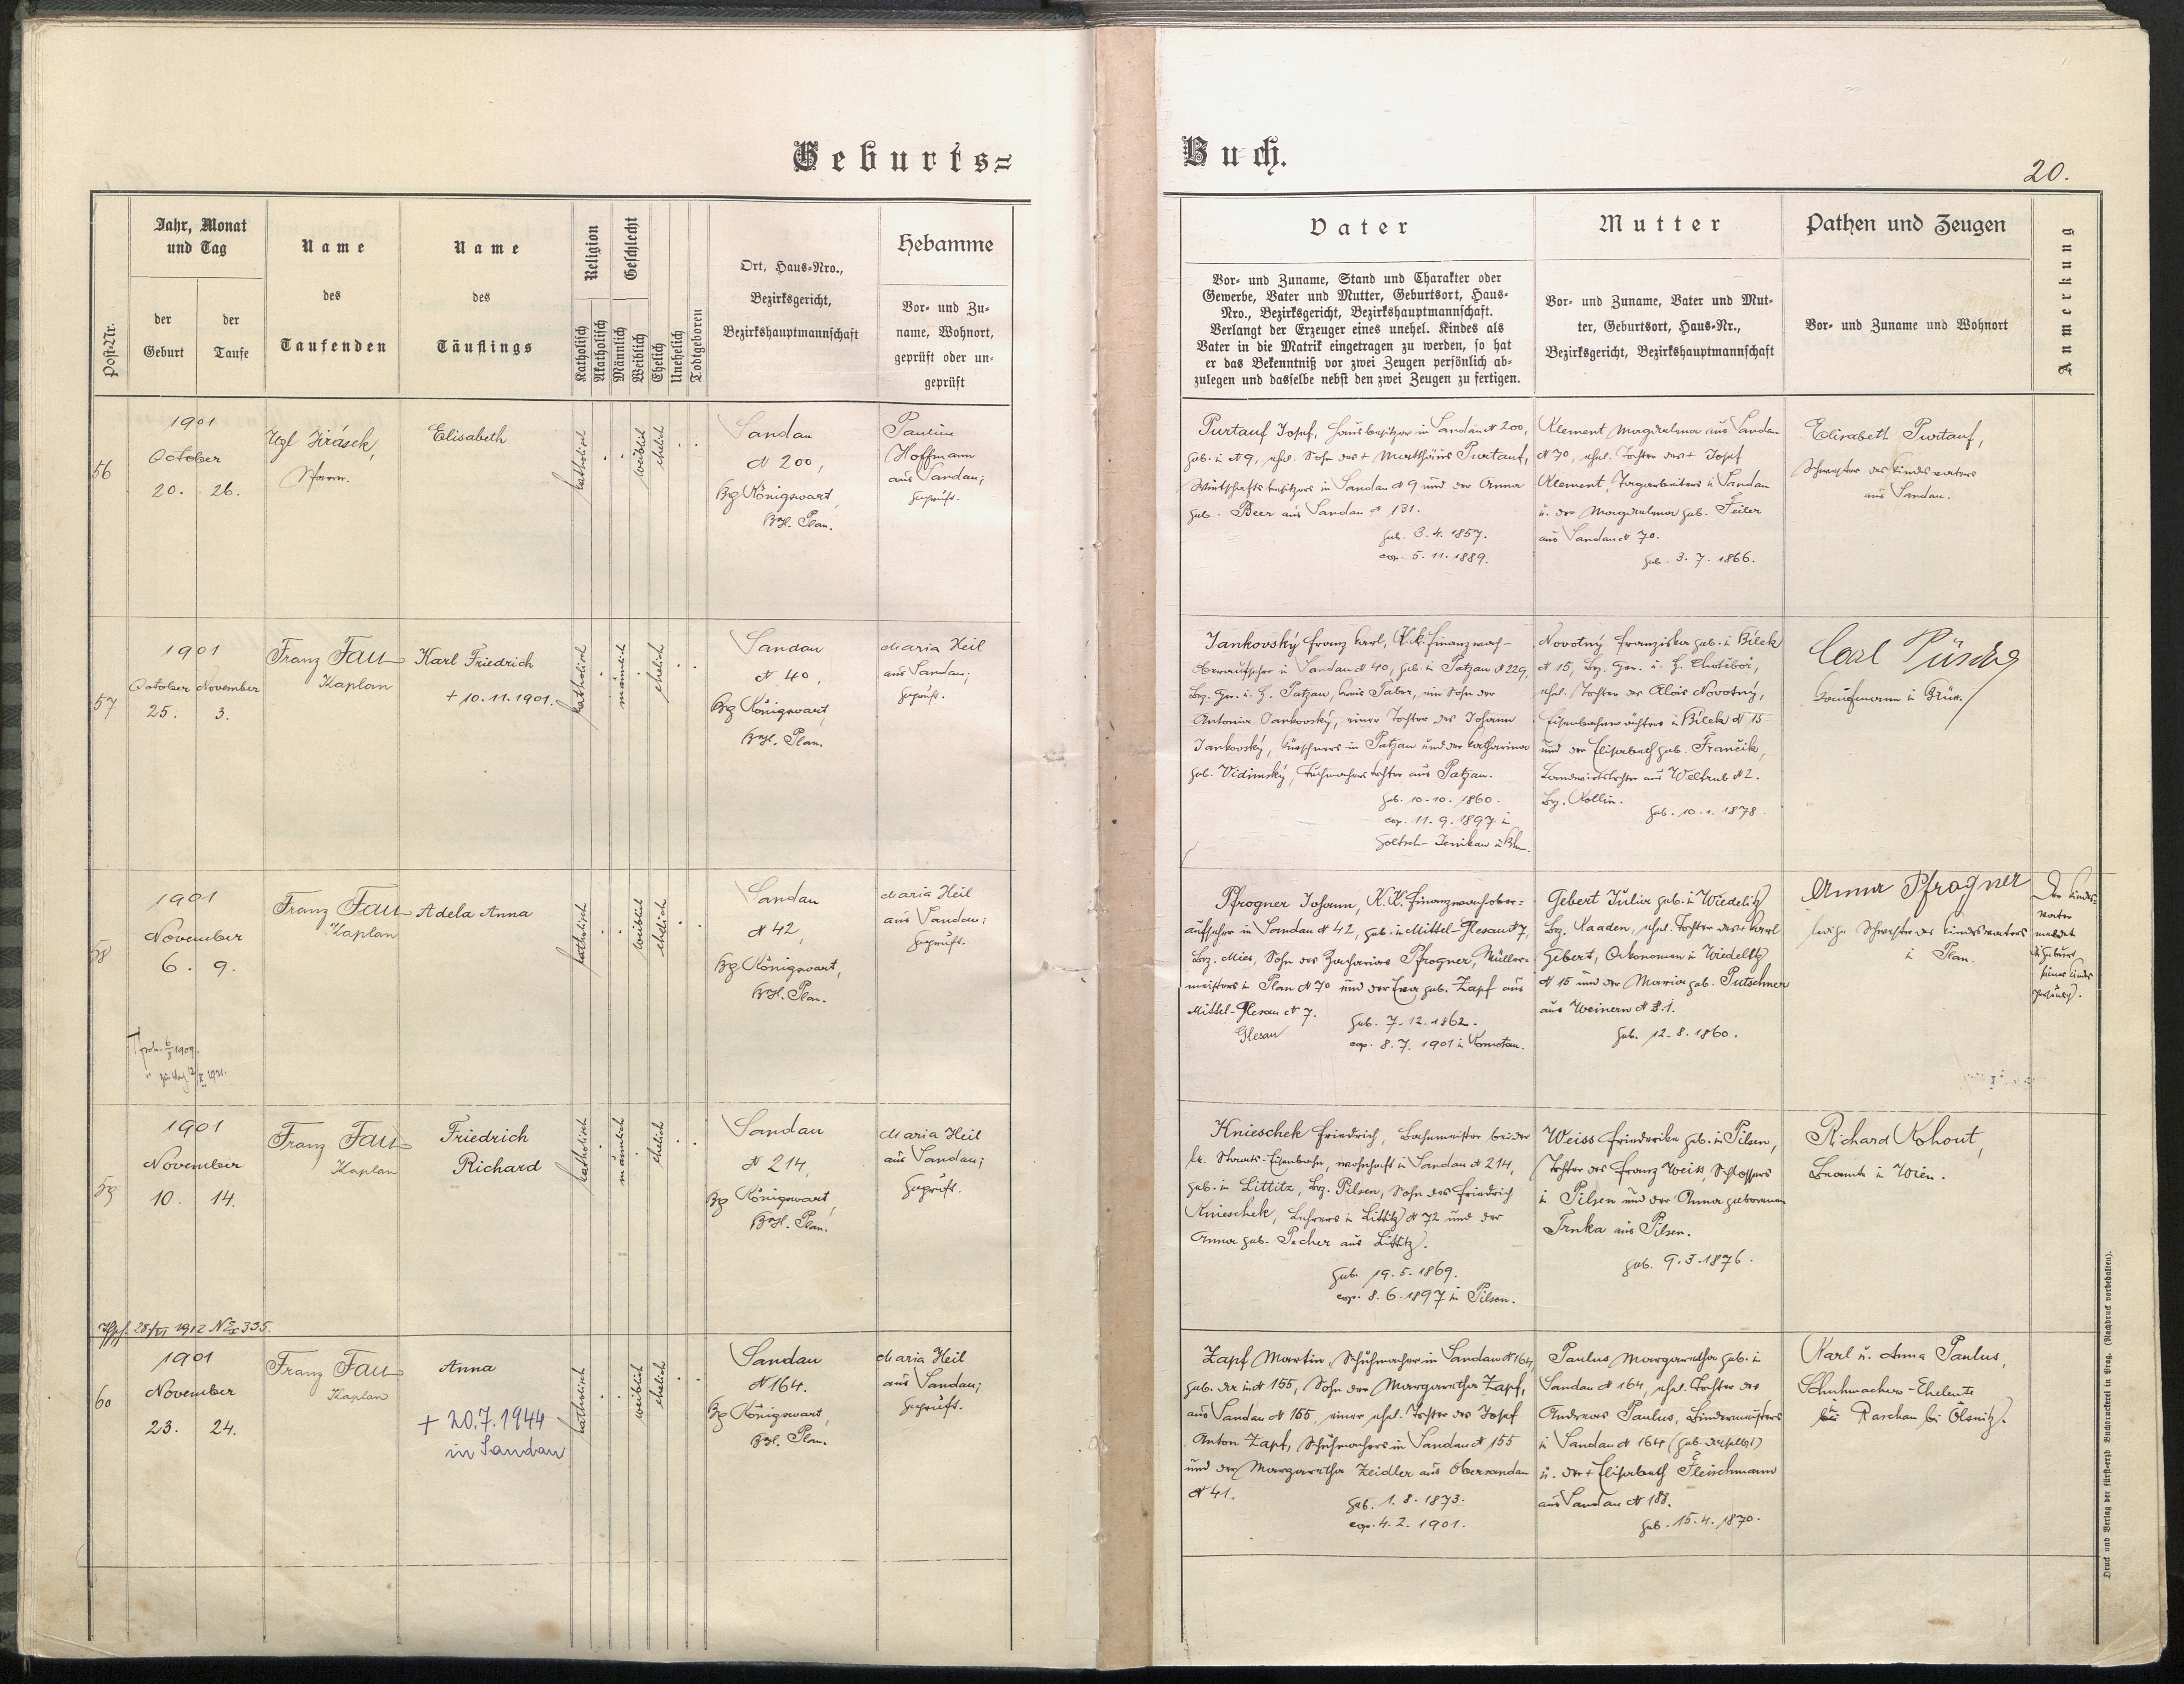 Geburts=
Buch.
20.
Post-Nr.
Jahr, Monat
und Tag
der
Geburt
der
Taufe
Name
des
Taufenden
Name
des
Täuflings
Religion
Katholisch
Akatholisch
Geschlecht
Männlich
Weiblich
Ehelich
Unehelich
Todtgeboren
Ort, Haus-Nro.,
Bezirksgericht,
Bezirkshauptmannschaft
Hebamme
Vor- und Zu-
name, Wohnort,
geprüft oder un-
geprüft
Vater
Vor- und Zuname, Stand und Charakter oder
Gewerbe, Vater und Mutter, Geburtsort, Haus-
Nro., Bezirksgericht, Bezirkshauptmannschaft.
Verlangt der Erzeuger eines unehel. Kindes als
Vater in die Matrik eingetragen zu werden, so hat
er das Bekenntniß vor zwei Zeugen persönlich ab-
zulegen und dasselbe nebst den zwei Zeugen zu fertigen.
Mutter
Vor- und Zuname, Vater und Mut-
ter, Geburtsort, Haus-Nr.,
Bezirksgericht, Bezirkshauptmannschaft
Pathen und Zeugen
Vor- und Zuname und Wohnort
Anmerkung
56
1901
October
20. 26.
Jirásek,
Pfarrer.
Elisabeth
katholisch
weiblich
ehelich
Sandau
N 200,
Bg Königswart,
BzH. Plan.
Pauline
Hoffmann
aus Sandau;
geprüft.
Purtauf Josef, Hausbesitzer in Sandau N 200,
geb. in N 9, ehel. Sohn des + Matthäus Purtauf,
Wirtschaftsbesitzers in Sandau N 9 und der Anna
geb. Beer aus Sandau N 131.
geb. 3. 4. 1857.
cop. 5. 11. 1889.
Klement Magdalena aus Sandau
N 70, ehel. Tochter des + Josef
Klement, Tagarbeiters in Sandau
u. der Magdalena geb. Feiler
aus Sandau N 70.
geb. 3. 7. 1866.
Elisabeth Purtauf,
Schwester des Kindesvaters
aus Sandau.
57
1901
October November
25. 3.
Franz Fau
Kaplan
Karl Friedrich
+ 10. 11. 1901.
katholisch
männlich
ehelich
Sandau
N 40,
Bg Königswart,
BzH. Plan.
Maria Heil
aus Sandau;
geprüft.
Jankovský Franz Karl, K.k. Finanzwach-
Oberaufseher in Sandau N 40, geb. in Patzau N 229,
Bez. Ger. u. H. Patzau, Kreis Tabor, ein Sohn der
Antonia Jankovský, einer Tochter des Johann
Jankovský, Kürschners in Patzau und der Katharina
geb. Vidimský, Tuchmacherstochter aus Patzau.
geb. 10. 10. 1860.
cop. 11. 9. 1897 in
Goltsch-Jenikau
Novotný Franziska geb. in Bílek
N 15, Bez. Ger. u. H. Chotěboř,
ehel. Tochter des Alois Novotný,
Eisenbahnwächters in Bílek N 15
und der Elisabeth geb. Frančík,
Landwirtstochter aus Weltrub N 2.
Bez. Kollin.
geb. 10. 1. 1878.
Carl
Kaufmann in Brüx.
58
1901
November
6. 9.
Franz Fau
Kaplan
Adela Anna
katholisch
weiblich
ehelich
Sandau
N 42,
Bg Königswart,
BzH. Plan.
Maria Heil
aus Sandau;
geprüft.
Pfrogner Johann, K.K. Finanzwachober-
aufseher in Sandau N 42, geb. in Mittel-Glesau N 7,
Bez. Mies, Sohn des Zacharias Pfrogner, Müller-
meisters in Plan N 70 und der Eva geb. Zapf aus
Mittel-Glesau N 7.
Glesau
geb. 7. 12. 1862.
cop. 8. 7. 1901 in Komotau.
Gebert Julia geb. in Wiedelitz
Bez. Kaaden, ehel. Tochter des + Karl
Gebert, Oekonomen in Wiedelitz
N 15 und der Maria geb. Putschner
aus Weinern N 31.
geb. 12. 8. 1860.
Anna Pfrogner
ledige Schwester des Kindesvaters
in Plan.
Der Kindes-
vater
meldet
die Geburt
seines Kindes
59
1901
November
10. 14.
Franz Fau
Kaplan
Friedrich
Richard
katholisch
männlich
ehelich
Sandau
N 214,
Bg Königswart,
BzH. Plan.
Maria Heil
aus Sandau;
geprüft.
Knieschek Friedrich, Bahnmeister bei der
kk. Staats-Eisenbahn, wohnhaft in Sandau N 214,
geb. in Littitz, Bez. Pilsen, Sohn des Friedrich
Knieschek, Lehrers in Littitz N 72 und der
Anna geb. Pecher aus Littitz.
geb. 19. 5. 1869.
cop. 8. 6. 1897 in Pilsen.
Weiss Friederika geb. in Pilsen,
Tochter des Franz Weiss, Schlossers
in Pilsen und der Anna geborenen
Trnka aus Pilsen.
geb. 9. 3. 1876.
Richard Kohout,
Beamte in Wien.
28./VI 1912 No 335.
60
1901
November
23. 24.
Franz Fau
Kaplan
Anna
+ 20.7.1944
in Sandau
katholisch
weiblich
ehelich
Sandau
N 164.
Bg Königswart,
BzH. Plan.
Maria Heil
aus Sandau;
geprüft.
Zapf Martin, Schuhmacher in Sandau N 164,
geb. in N 155, Sohn der Margaretha Zapf,
aus Sandau N 155, einer ehel. Tochter des Josef
Anton Zapf, Schuhmachers in Sandau N 155
und der Margaretha Zeidler aus Obersandau
N 41.
geb. 1. 8. 1873.
cop. 4. 2. 1901.
Paulus Margaretha geb. in
Sandau N 164, ehel. Tochter des
Andreas Paulus, Bindermeisters
in Sandau N 164 (geb. daselbst)
u. der + Elisabeth Fleischmann
aus Sandau N 188.
geb. 15. 4. 1870.
Karl u. Anna Paulus,
Schuhmachers-Eheleute
in Raschau bei Ölsnitz.
Druck und Verlag der fürst-erzb. Buchdruckerei in Prag. (Nachdruck vorbehalten).